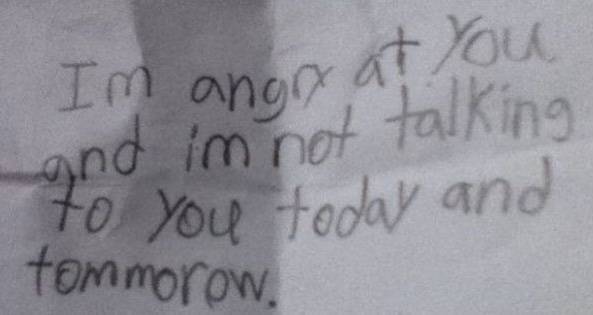 Im angry at you
and im not talking
to you today and
tommorow.